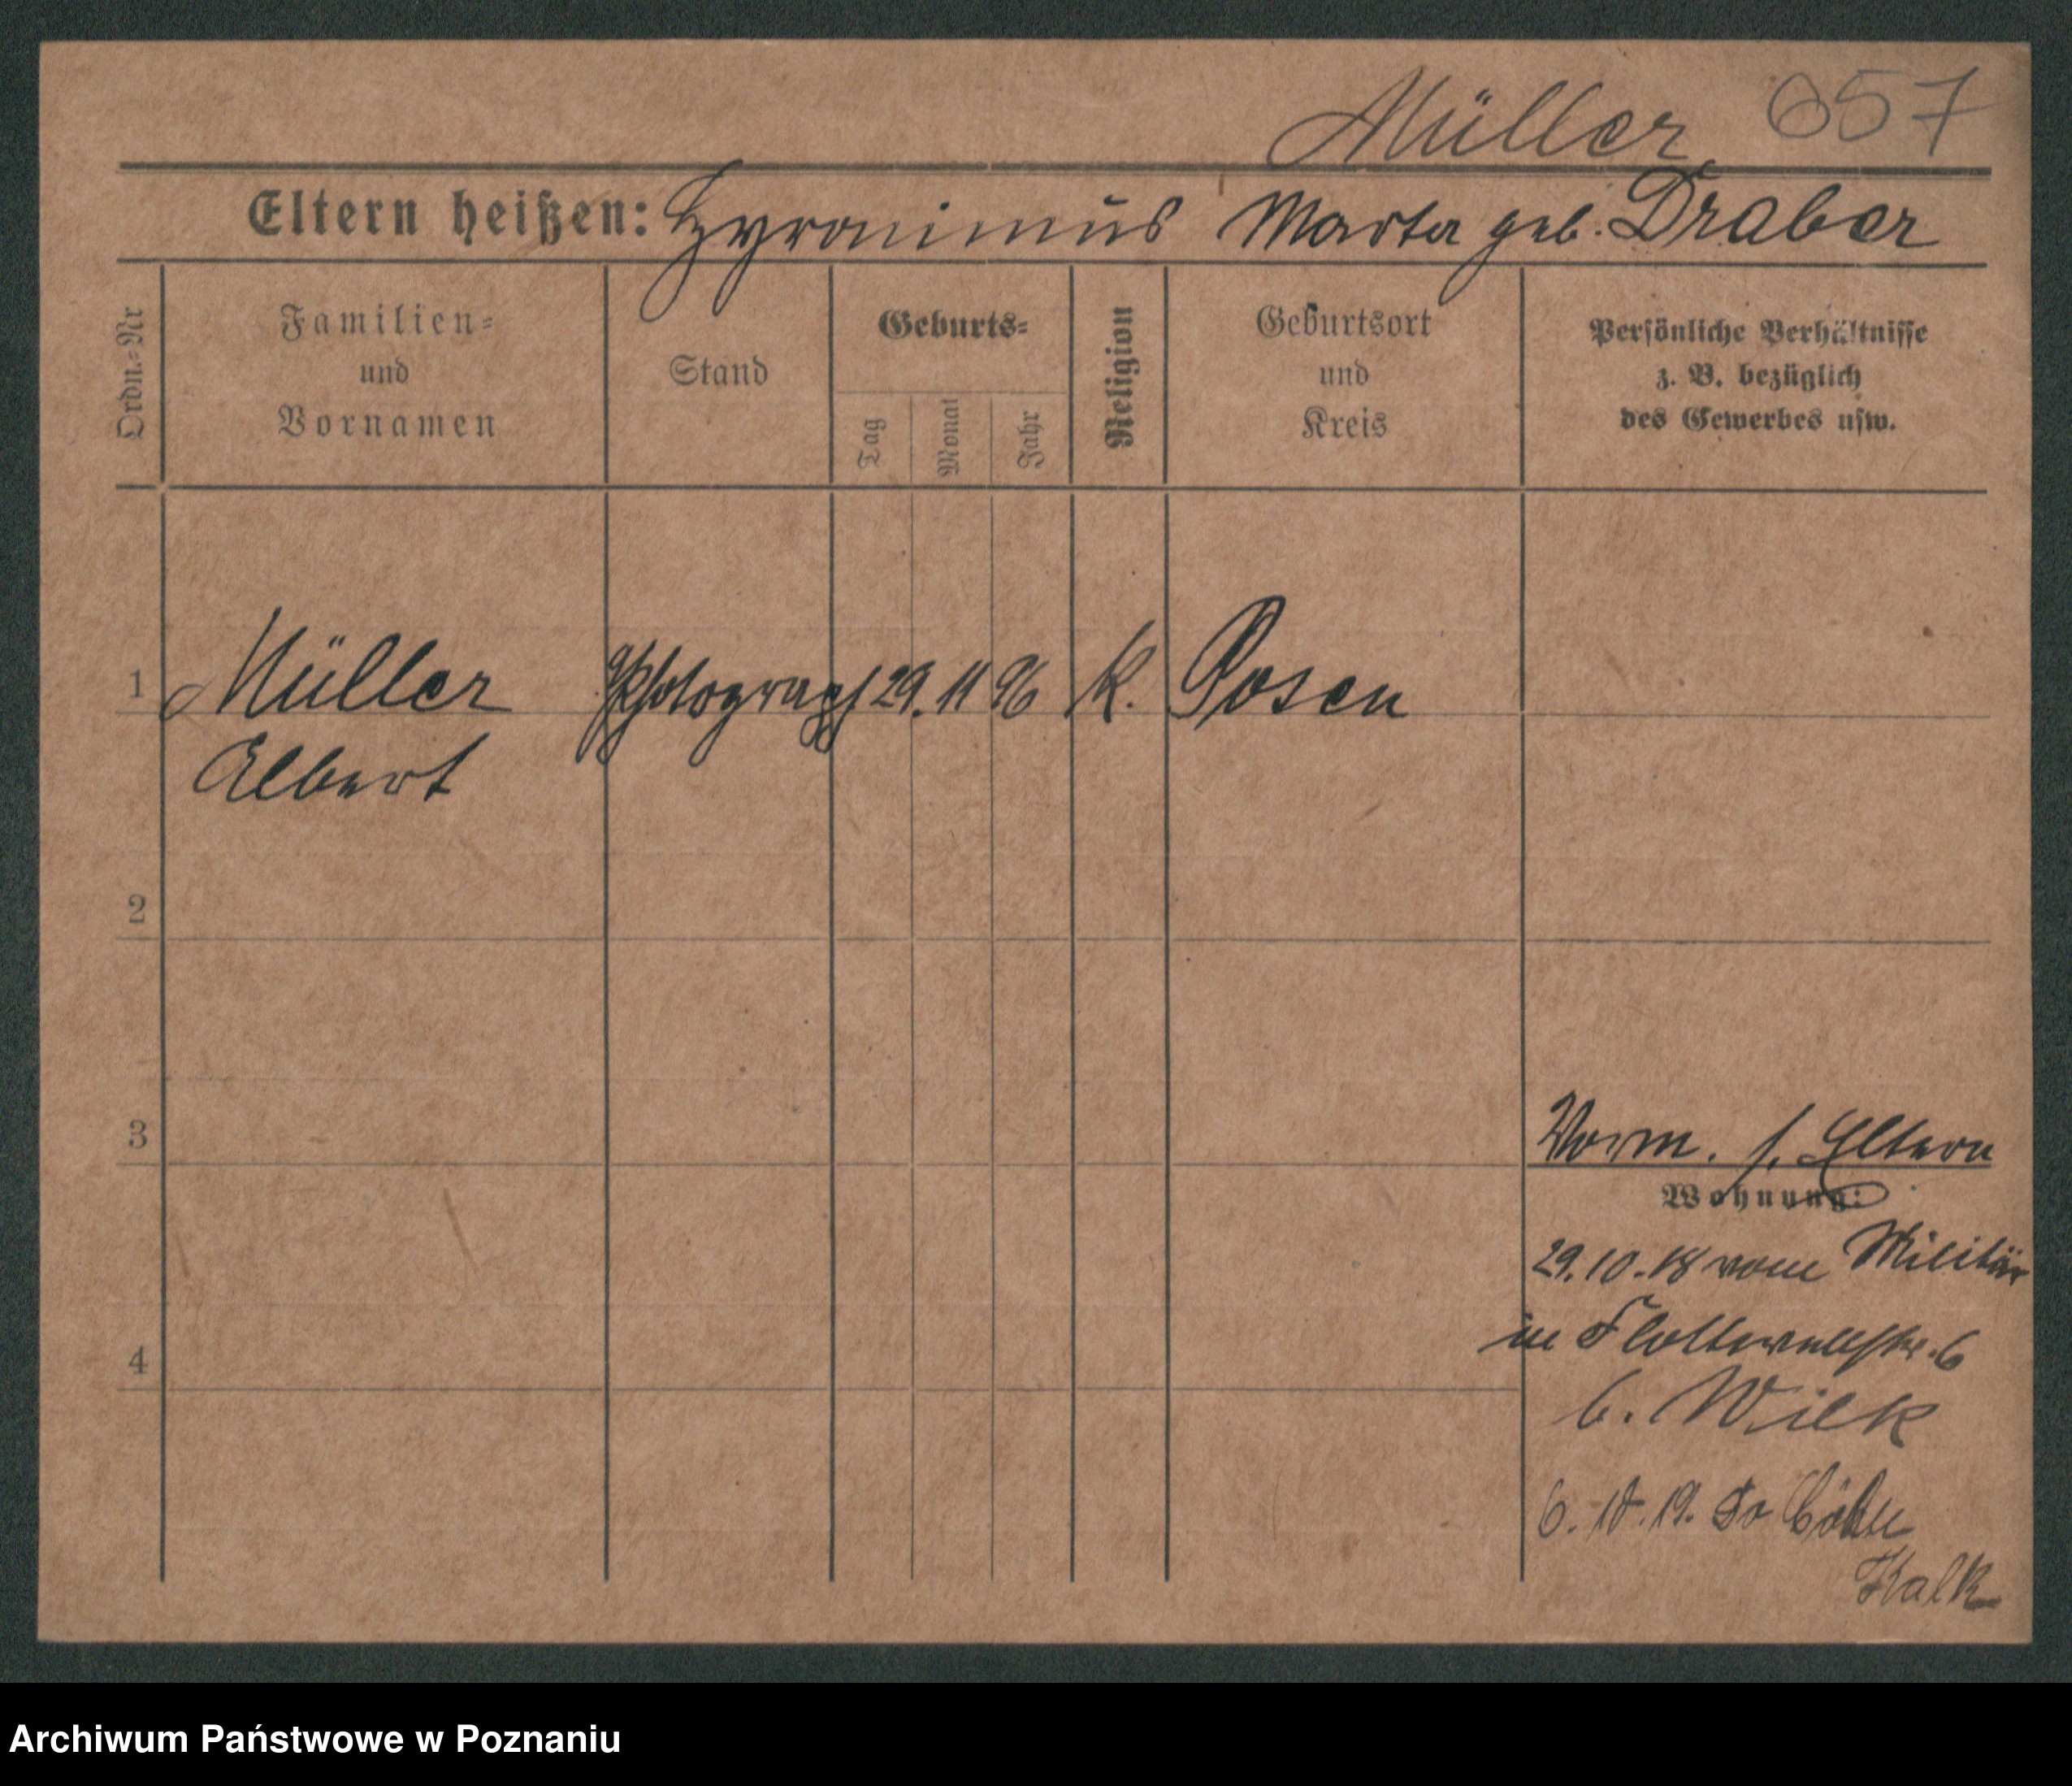 Müller 657
Eltern heißen: Hyronimus Marta geb. Draber
Ordn.=Nr
Familien=
und
Vornamen
Stand
Geburts=
Tag
Monat
Jahr
Religion
Geburtsort
und
Kreis
Persönliche Verhältnisse
z. B. bezüglich
des Gewerbes usw.
1 Müller Photograph 29. 11 96 K. Posen
Albert
2
3 Vorm. s. Eltern
Wohnung:
29.10.18 vom Militär
in Flottwellstr. 6
4
b. Wilk
6. 10. 19.
Kalk
Archiwum Państwowe w Poznaniu